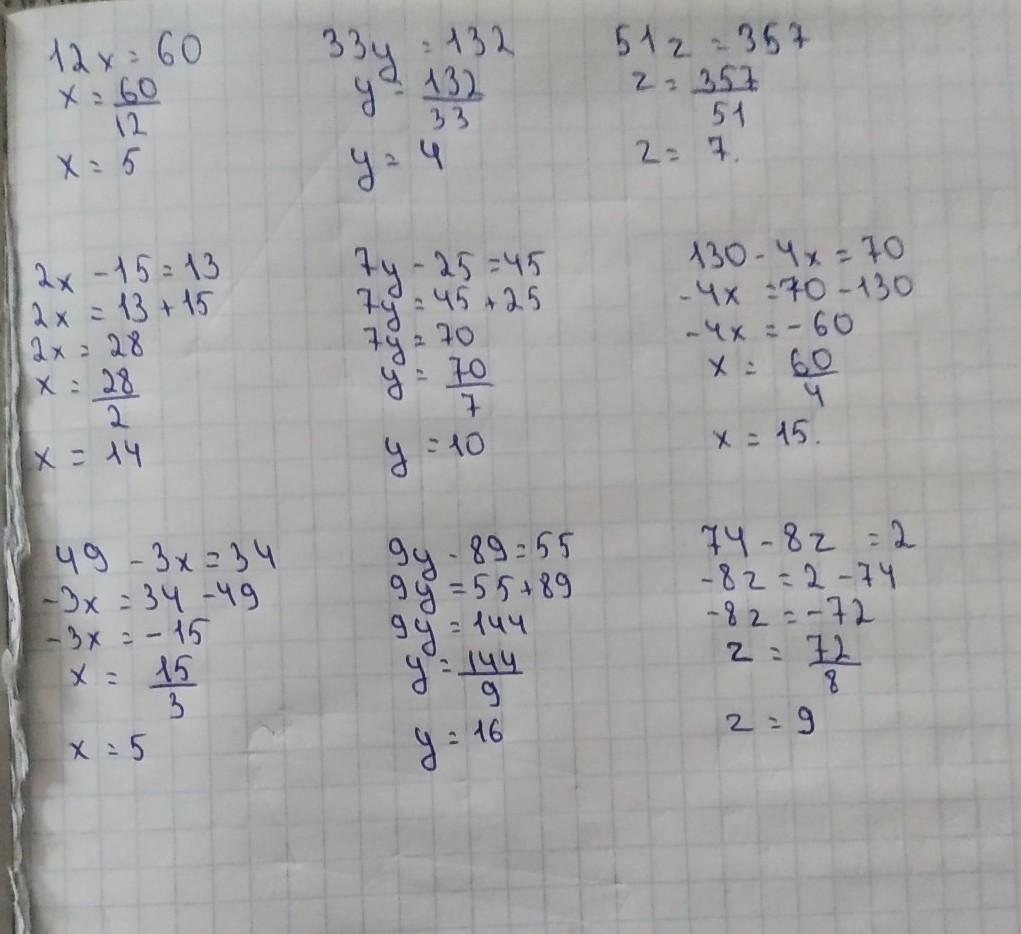 12x = 60
x = 60/12
x = 5
33y = 132
y = 132/33
y = 4
51z = 357
z = 357/51
z = 7.
2x - 15 = 13
2x = 13 + 15
2x = 28
x = 28/2
x = 14
7y - 25 = 45
7y = 45 + 25
7y = 70
y = 70/7
y = 10
130 - 4x = 70
-4x = 70 - 130
-4x = -60
x = 60/4
x = 15.
49 - 3x = 34
-3x = 34 - 49
-3x = -15
x = 15/3
x = 5
9y - 89 = 55
9y = 55 + 89
9y = 144
y = 144/9
y = 16
74 - 8z = 2
-8z = 2 - 74
-8z = -72
z = 72/8
z = 9